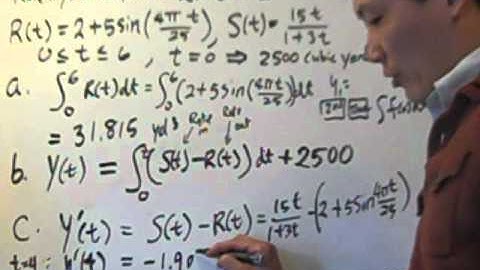 R(t) = 2 + 5 sin(4π t / 25), S(t) = 15t / 1+3t
0 ≤ t ≤ 6, t = 0 ⇒ 2500 cubic yar
a. ∫₀⁶ R(t)dt = ∫₀⁶ (2+5sin(4πt/25))dt Y₁ =
= 31.815 yd³ Rate in Rate out
b. Y(t) = ∫₀ (S(t) − R(t)) dt + 2500
C. Y'(t) = S(t) − R(t) = 15t / 1+3t − (2+5sin 4πt/25)
t=4: Y'(t) = −1.90